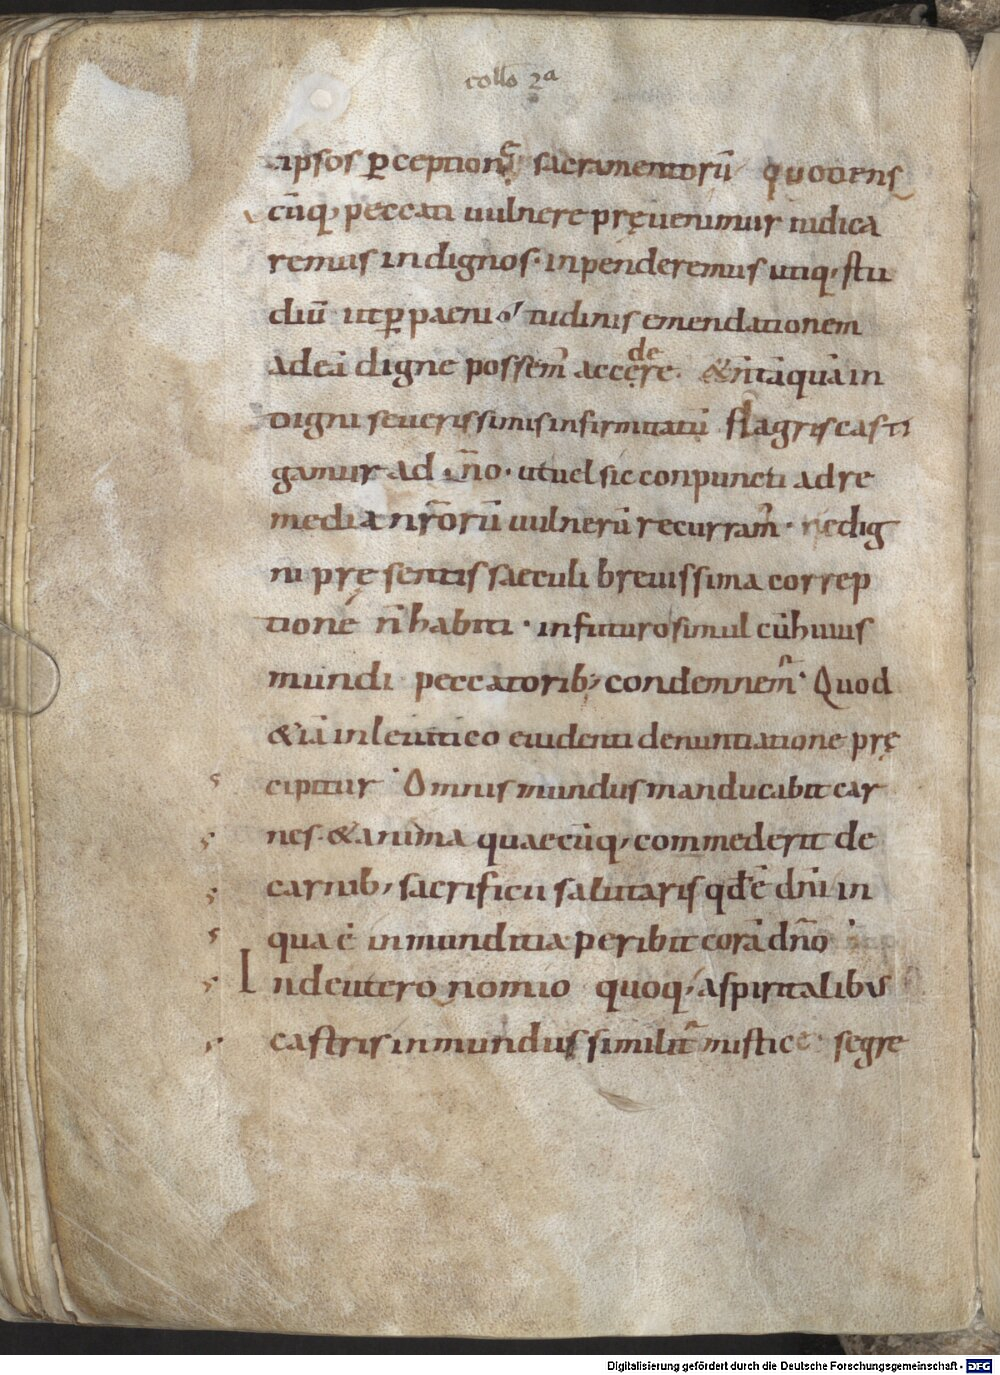 collo 2ª
ipsos ꝑceptione sacramentorū quotiens
cūq; peccati uulnere pręuenimur iudica
remus indignos · inpenderemus utiq; stu
diū · ut ꝑ paenitudinis emendationem
ad eā digne possem̄ accedere · & n̄ tāquā in
digni seuerissimis infirmitatū flagris casti
gamur ad dn̄o · ut uel sic conpuncti ad re
media nr̄orū uulnerū recurram̄ · ne dig
ni pręsentis saeculi breuissima correp
tione n̄ habiti · in futuro simul cū huius
mundi peccatorib; condemnem̄ · Quod
&iā in leuitico euidenti denuntiatione prę
cipitur · Omnis mundus manducabit car
nes · & anima quaecūq; commederit de
carnib; sacrificii salutaris qđ ē dn̄i in
qua ē inmunditia peribit corā dn̄o
In deuteronomio quoq; a spiritalibus
castris inmundus similit̄ mistice segre
Digitalisierung gefördert durch die Deutsche Forschungsgemeinschaft - DFG